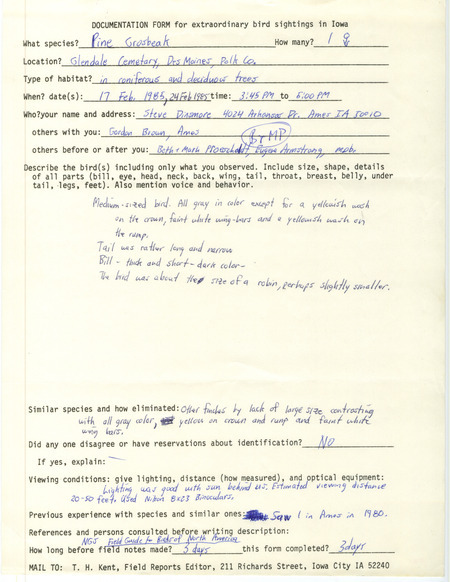 DOCUMENTATION FORM for extraordinary bird sightings in Iowa
What species? Pine Grosbeak How many? 1 ♀
Location? Glendale Cemetary, Des Moines, Polk Co.
Type of habitat? in coniferous and deciduous trees
When? date(s): 17 Feb. 1985, 24 Feb 1985 time: 3:45 PM to 5:00 PM
Who? your name and address: Steve Dinsmore 4024 Arkansas Dr. Ames IA 50010
others with you: Gordon Brown, Ames
others before or after you: Beth + Mark Proescholdt, Eugene Armstrong, mob.
Describe the bird(s) including only what you observed. Include size, shape, details
of all parts (bill, eye, head, neck, back, wing, tail, throat, breast, belly, under
tail, legs, feet). Also mention voice and behavior.
Medium-sized bird. All gray in color except for a yellowish wash
on the crown, faint white wing-bars and a yellowish wash on
the rump.
Tail was rather long and narrow
Bill - thick and short - dark color-
The bird was about the size of a robin, perhaps slightly smaller.
Similar species and how eliminated: Other finches by lack of large size contrasting
with all gray color, yellow on crown and rump and faint white
wing bars.
Did any one disagree or have reservations about identification? No
If yes, explain: —
Viewing conditions: give lighting, distance (how measured), and optical equipment:
Lighting was good with sun behind us. Estimated viewing distance
20-50 feet. Used Nikon 8x23 Binoculars.
Previous experience with species and similar ones: Saw 1 in Ames in 1980.
References and persons consulted before writing description:
NGS Field Guide to Birds of North America
How long before field notes made? 3 days this form completed? 3 days
MAIL TO: T. H. Kent, Field Reports Editor, 211 Richards Street, Iowa City IA 52240